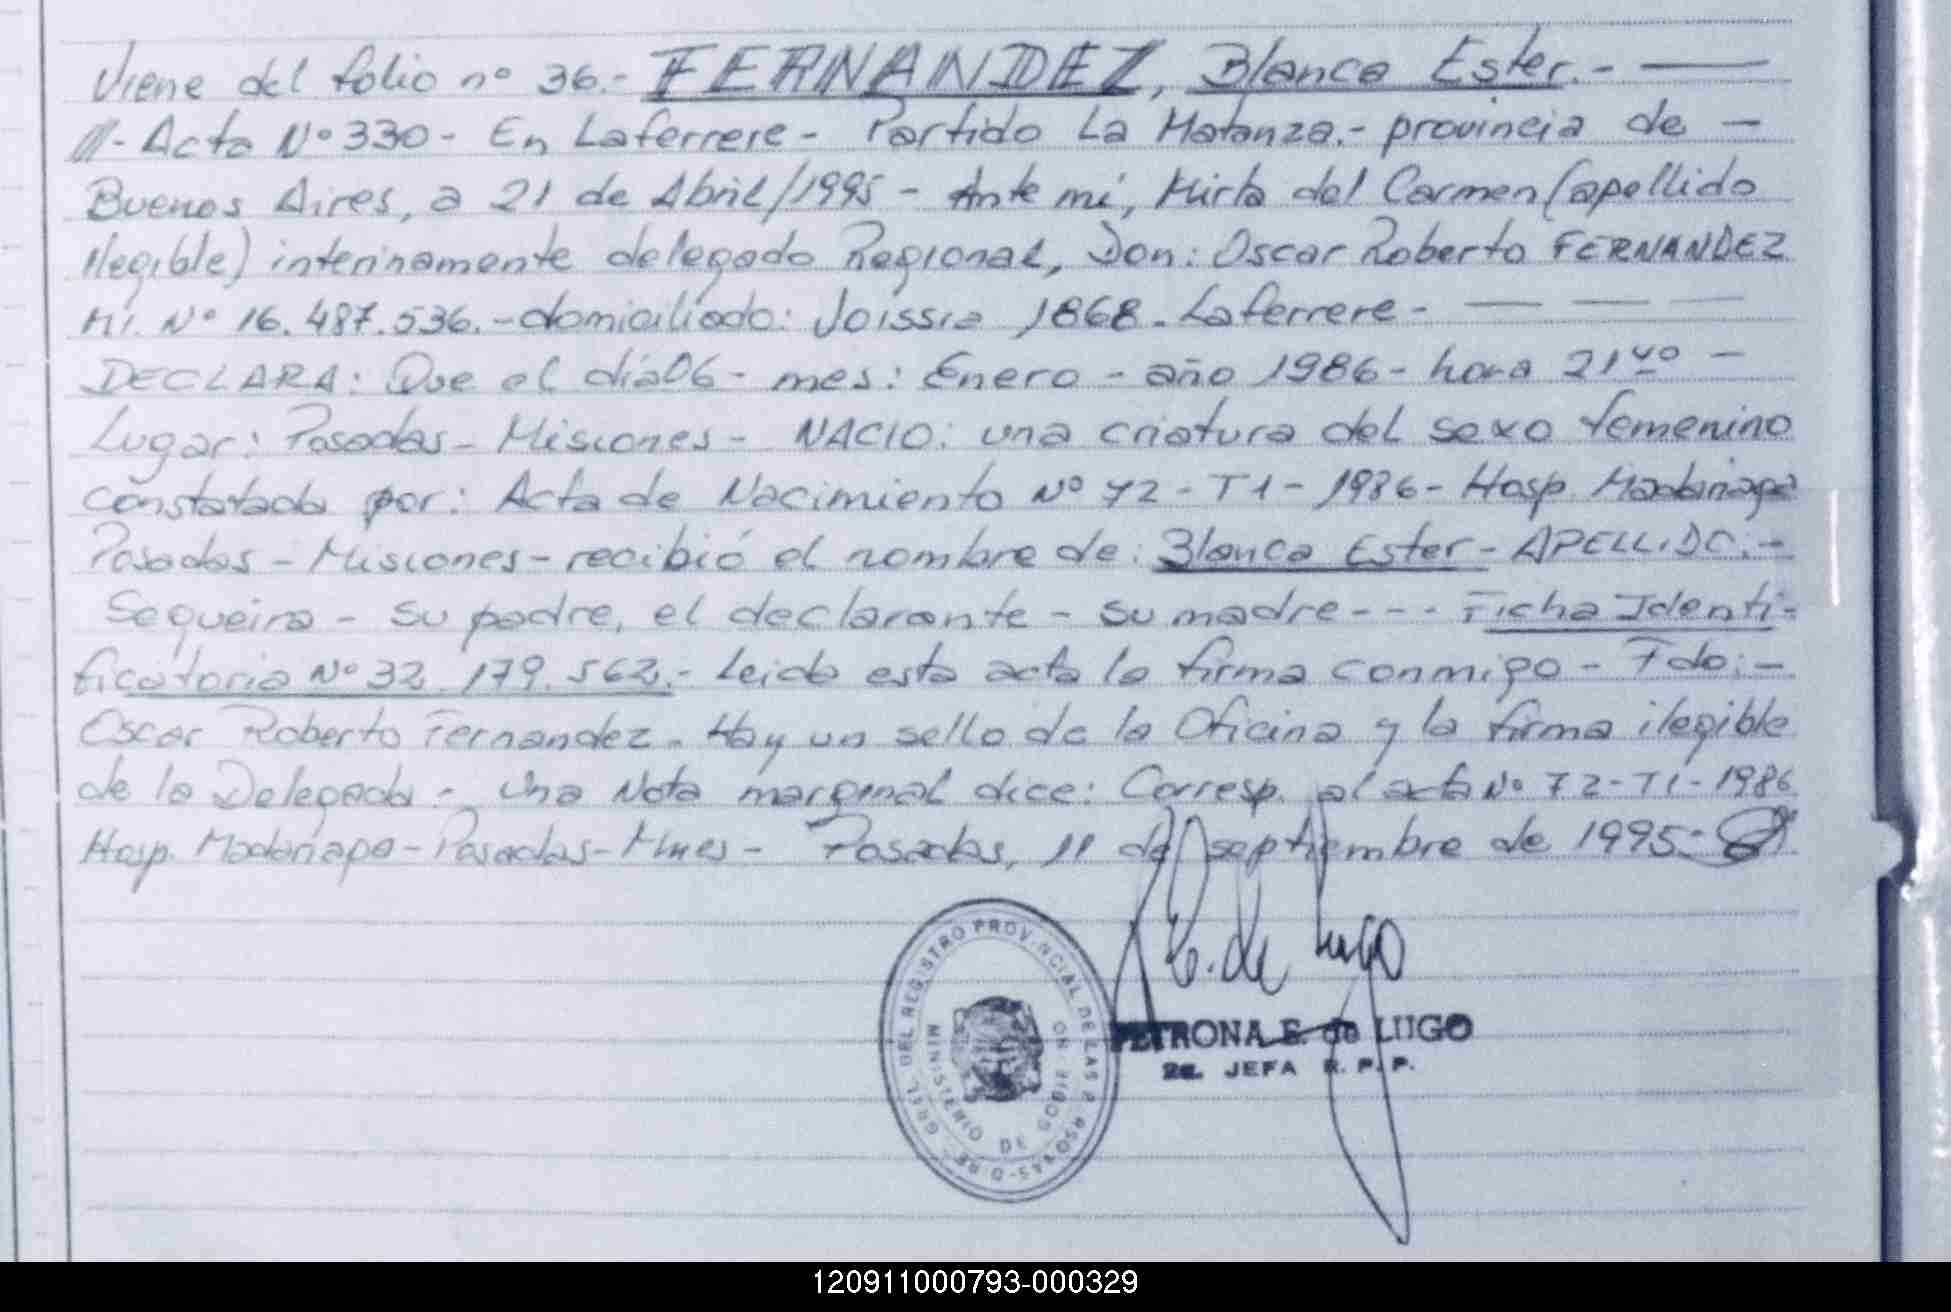 Viene del folio nº 36.- FERNANDEZ, Blanca Ester.-
///- Acta Nº 330 - En Laferrere - Partido La Matanza.- provincia de -
Buenos Aires, a 21 de Abril/1995 - Ante mí, Mirta del Carmen (apellido
ilegible) interinamente delegado Regional, Don: Oscar Roberto FERNANDEZ
MI. Nº 16.487.536.- domiciliado: 1868. Laferrere -
DECLARA: Que el día 06 - mes: Enero - año 1986 - hora 21 -
Lugar: Posadas - Misiones - NACIO: una criatura del sexo femenino
constatada por: Acta de Nacimiento Nº 72 - T1 - 1986 - Hosp. Madariaga
Posadas - Misiones - recibió el nombre de: Blanca Ester - APELLIDO: -
Sequeira - su padre, el declarante - su madre - - - Ficha Identi-
ficatoria Nº 32.179.562.- Leida esta acta la firma conmigo - Fdo: -
Oscar Roberto Fernandez. Hay un sello de la Oficina y la firma ilegible
de la Delegada - Una Nota marginal dice: Corresp. al acta Nº 72 - T1 - 1986
Hosp. Madariaga - Posadas - Mnes - Posadas, 11 de septiembre de 1995.-
E. de Lugo
PETRONA E. de LUGO
2a. JEFA R. P. P.
GRAL. DEL REGISTRO PROVINCIAL DE LAS PERSONAS
MINISTERIO DE GOBIERNO
120911000793-000329